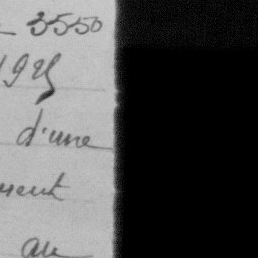 3550
1925
d'une
ment
au